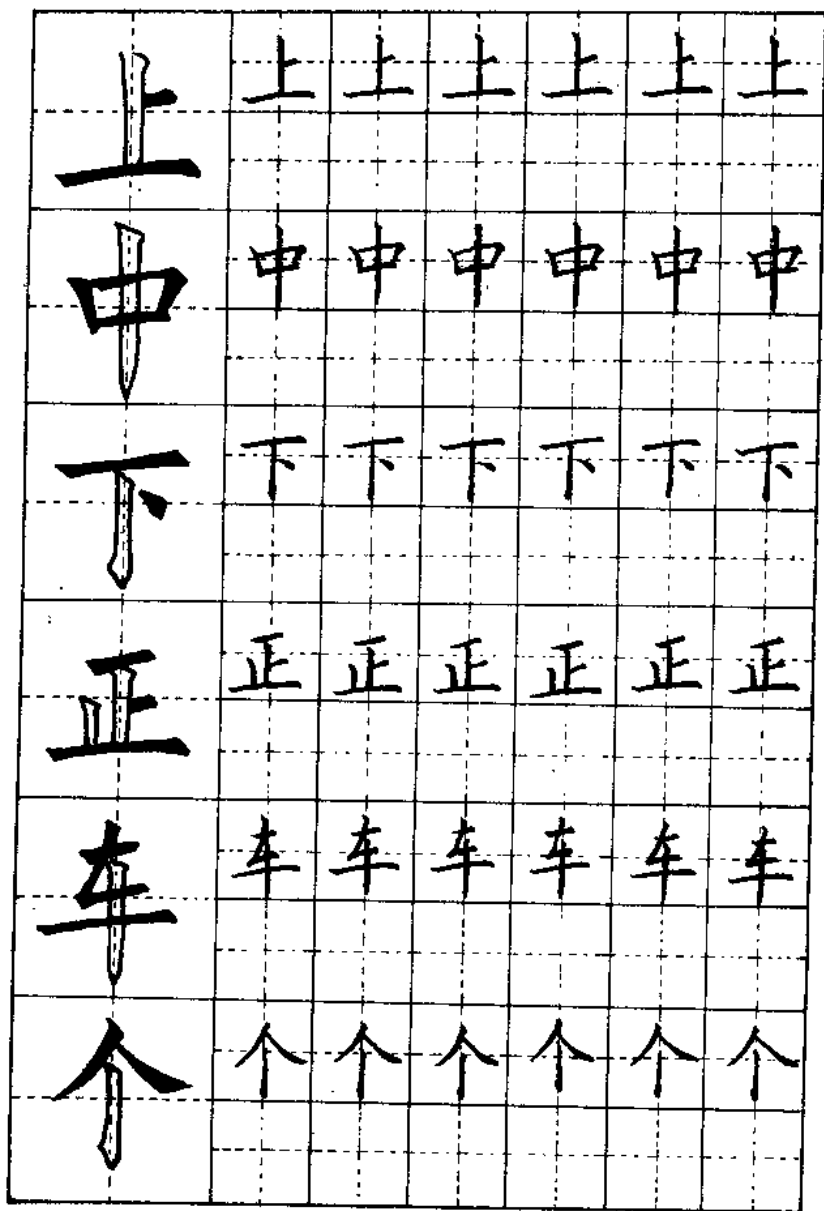 上上上上上上上
中中中中中中中
下下下下下下下
正正正正正正正
车车车车车车车
个个个个个个个